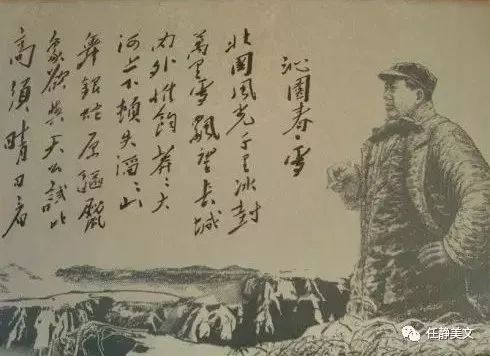 沁園春·雪
北国风光千里冰封
萬里雪飘望长城
内外惟馀莽々大
河上下顿失滔々山
舞银蛇原驱臘
象欲与天公试比
高须晴日看
任静美文